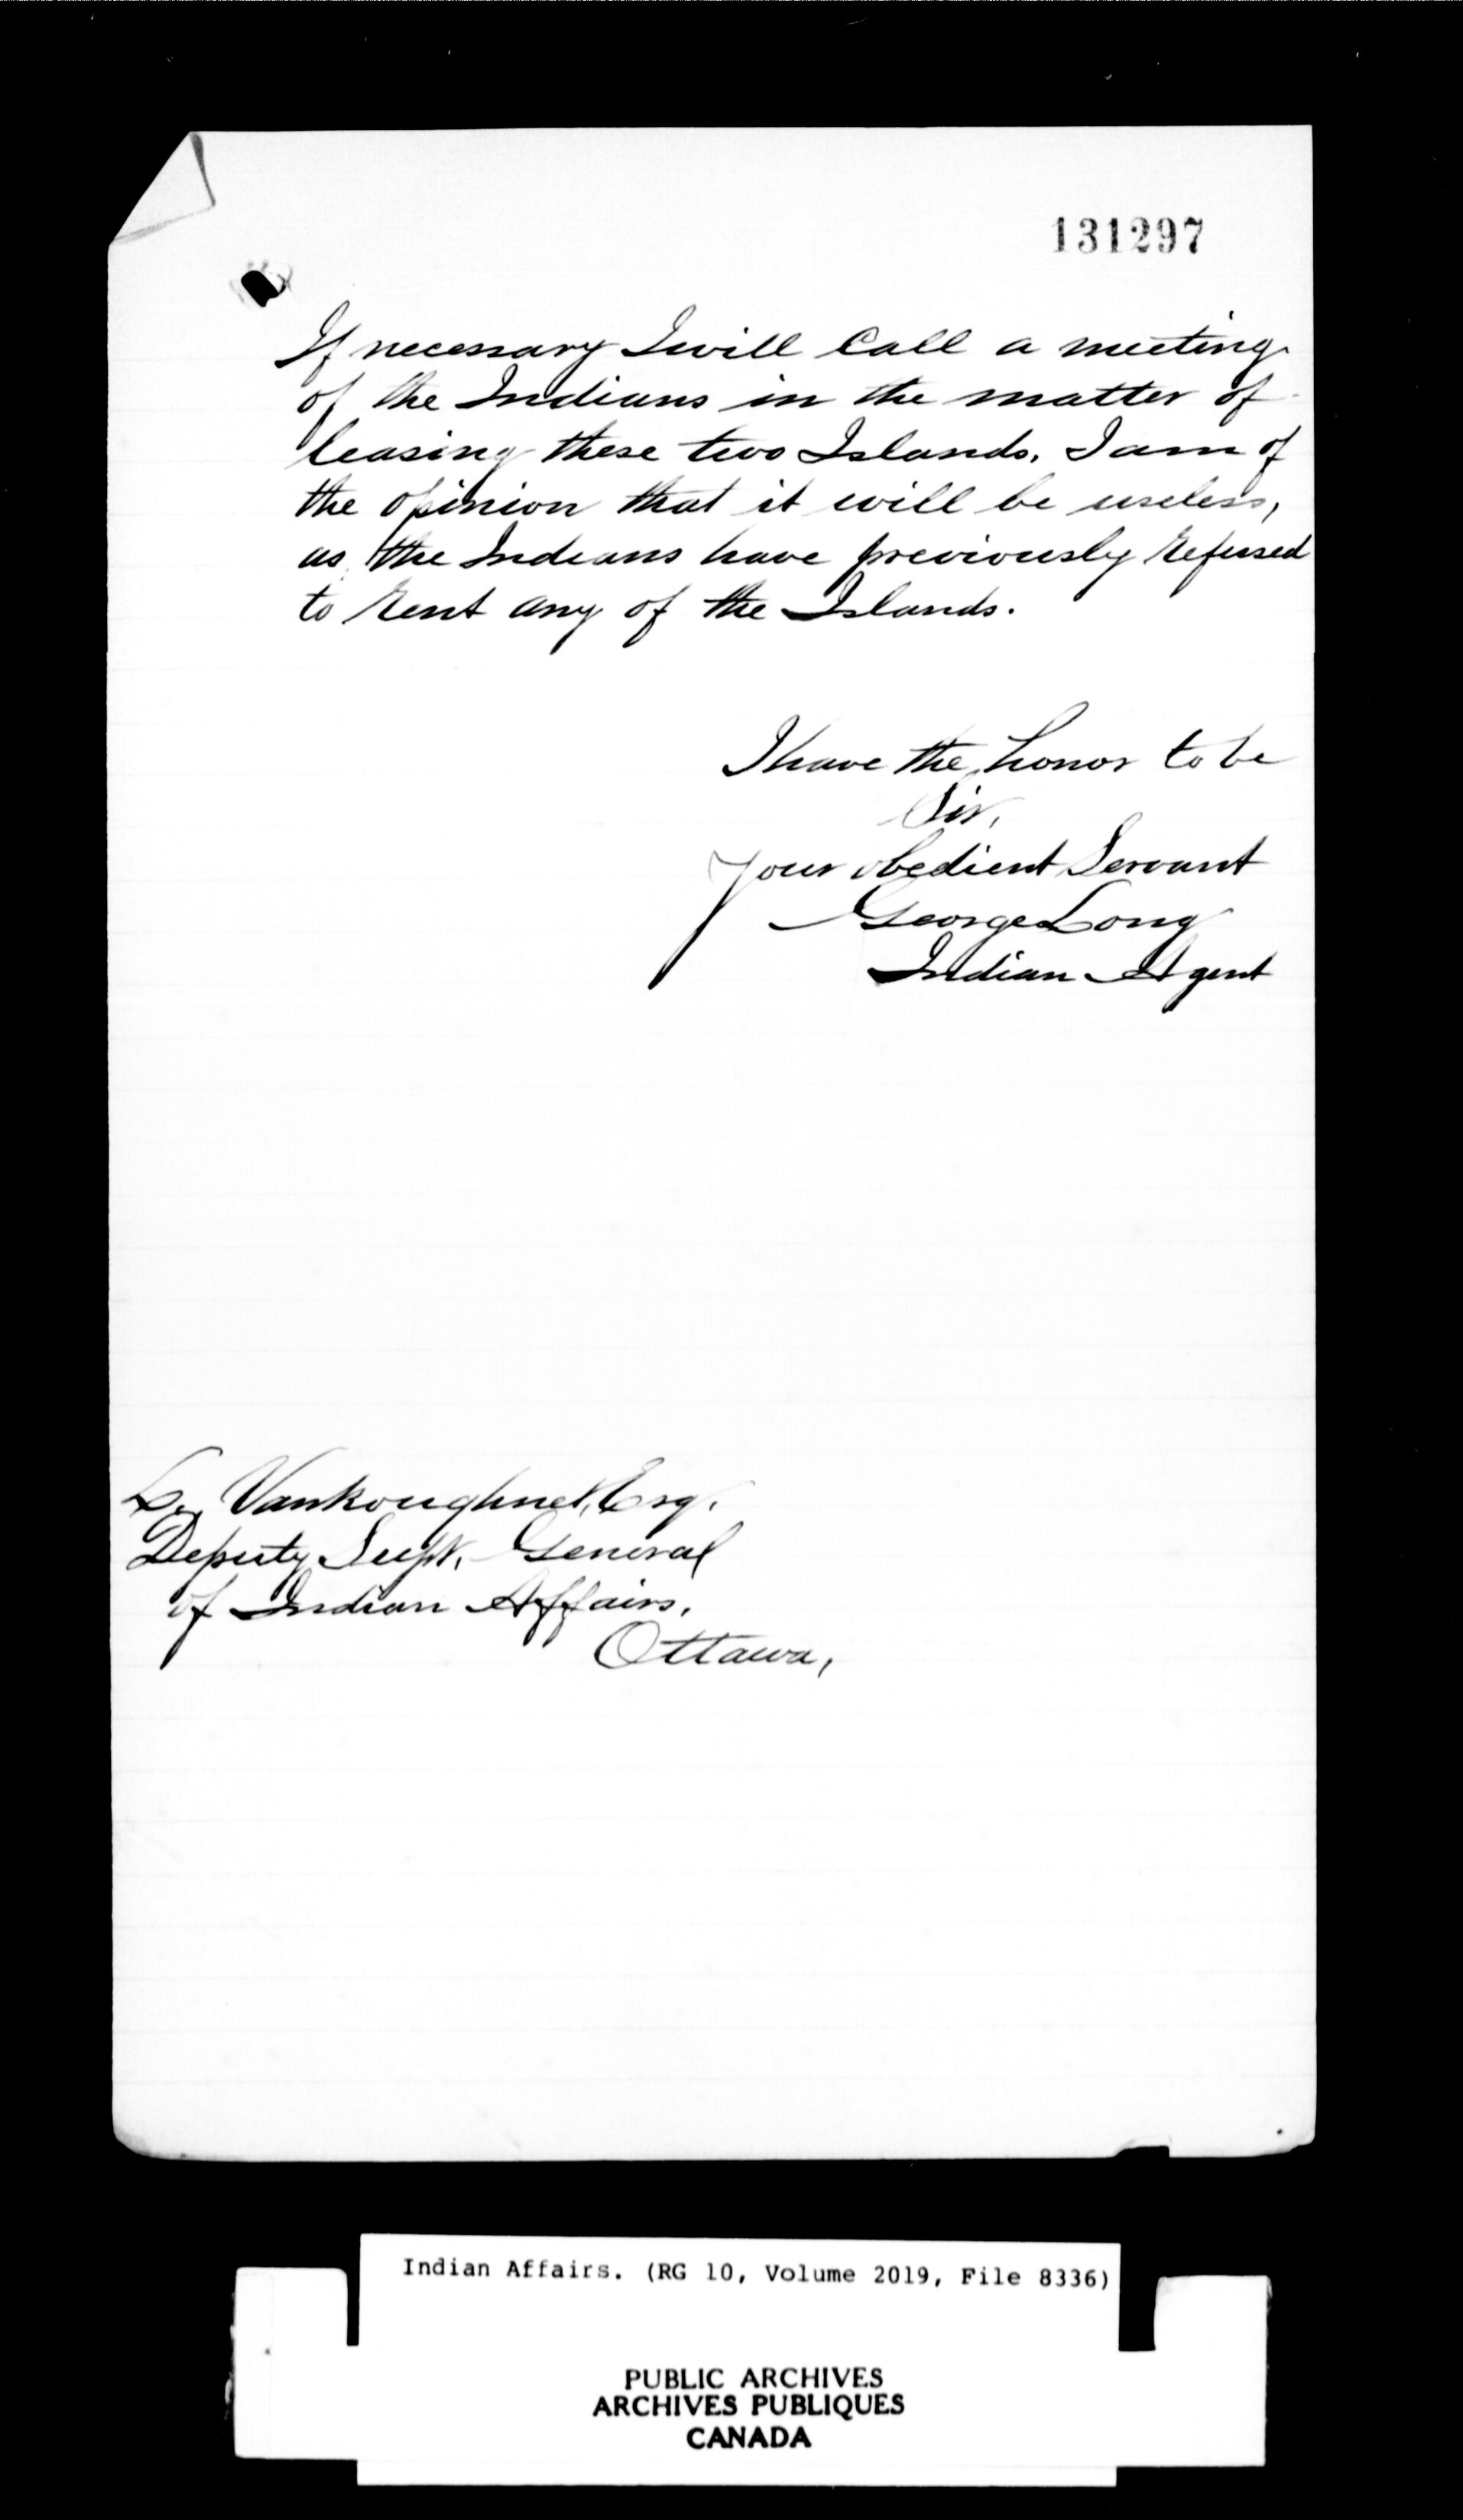 131297
If necessary I will Call a meeting
of the Indians in the matter of
leasing these two Islands. I am of
the opinion that it will be useless,
as the Indians have previously refused
to rent any of the Islands.
I have the honor to be
Sir,
Your obedient Servant
George Long
Indian Agent
L. Vankoughnet, Esq.
Deputy Supt. General
of Indian Affairs,
Ottawa,
Indian Affairs. (RG 10, Volume 2019, File 8336)
PUBLIC ARCHIVES
ARCHIVES PUBLIQUES
CANADA